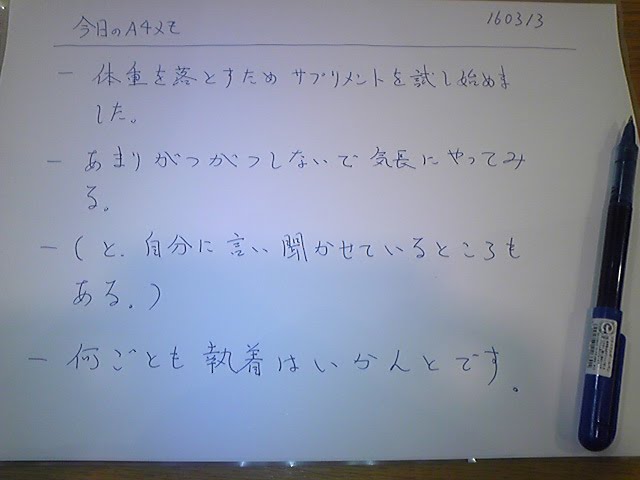 今日のA4メモ 160313
ー 体重を落とすため サプリメントを試し始めま
した。
ー あまりがつがつしないで 気長にやってみ
る。
ー (と、自分に言い聞かせているところも
ある。)
ー 何ごとも執着はいかんとです。